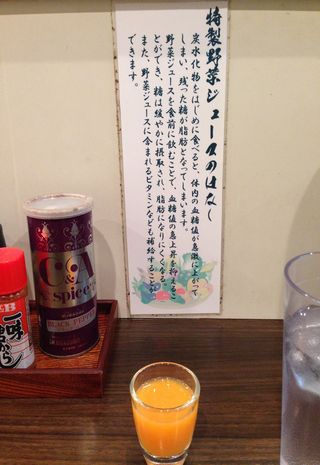 特製野菜ジュースのはなし
炭水化物をはじめに食べると、体内の血糖値が急激に上がって
しまい、残った糖が脂肪となってしまいます。
野菜ジュースを食前に飲むことで、血糖値の急上昇を抑えるこ
とができ、糖は緩やかに摂取され、脂肪になりにくくなる
また、野菜ジュースに含まれるビタミンなども補給することが
できます。
C&A
spice
BLACK PEPPER
一味
唐がらし